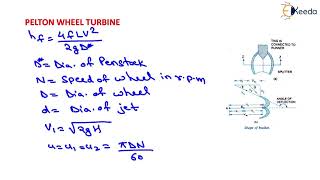 PELTON WHEEL TURBINE
Ekeeda
hf = 4fLV²
2gD*
D* = Dia. of Penstock
N = Speed of wheel in r.p.m
D = Dia. of wheel
d = Dia. of jet
V₁ = √2gH
u = u₁ = u₂ = πDN
60
THIS IS
CONNECTED TO
RUNNER
SPLITTER
ANGLE OF
DEFLECTION
Shape of bucket.